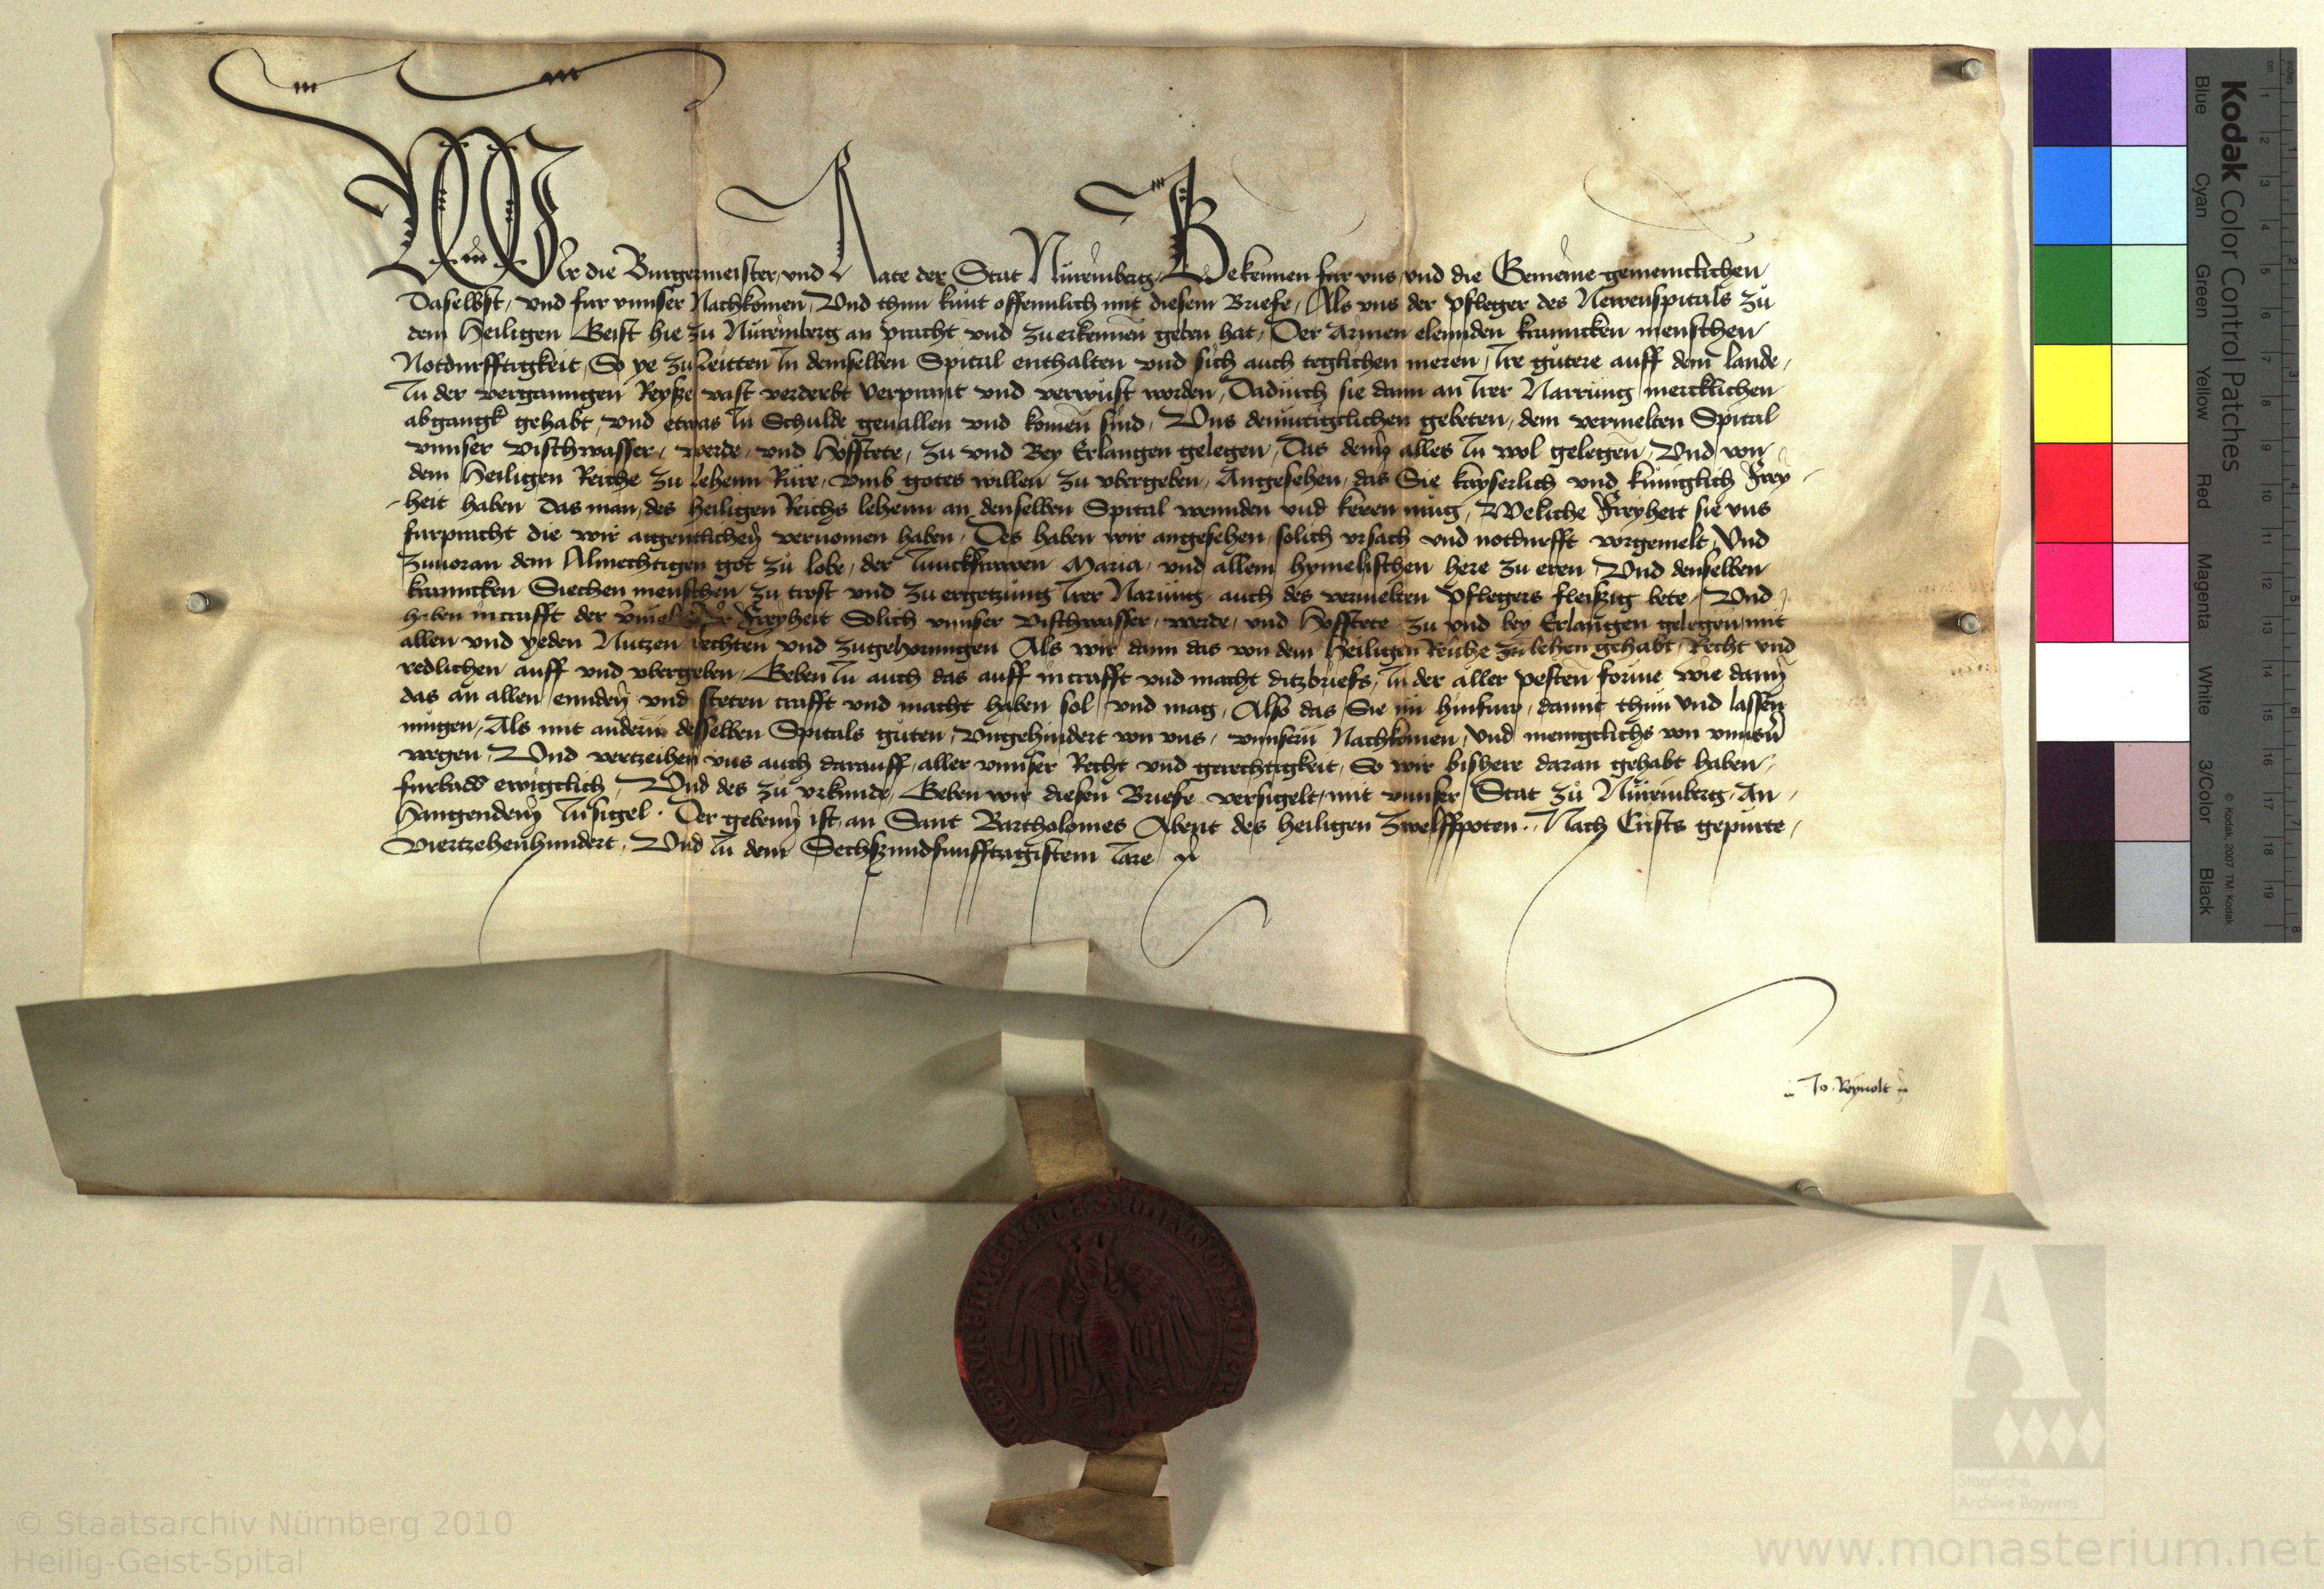 WIr die Burgermeister, und Rate der Stat Nüremberg, Bekennen fur uns, und die Gemeine gemeincklichen
Daselbst, und fur unnser Nachkomen, Und thun kunt offennlich mit diesem Briefe, Als uns der pfleger des Newenspitals zu
dem Heiligen Geist hie zu Nüremberg an pracht und zuerkennen geben hat, Der Armen elennden kranncken menschen
Notdurfftigkeit, So ye zu zeitten In demselben Spital enthalten und sich auch teglichen meren, Ire gütere auff dem lande,
In der vergangen Reyse vast verderbt verprant und verwüst worden, Dadurch sie dann an Irer Narrung mercklichen
abgangk gehabt, und etwas In Schulde gevallen und komen sind, Uns demutigclichen gebeten, dem vermelten Spital
unnser vischwasser, werde, und Hofstete, zu und Bey Erlangen gelegen, Das denn alles In wol gelegen, Und von
dem Heiligen Reiche zu lehenn Rüre, Umb gotes willen zu ubergeben, Angesehen, das Sie keyserlich und küniglich Frey
heit haben Das man, des heiligen Reichs lehenn an denselben Spital wennden und keren müg, Welche Freyheit sie uns
furpracht die wir aigentlichen vernomen haben, Des haben wir angesehen, solich ursach und notdurfft vorgemelt, Und
zuvoran dem Almechtigen got zu lobe, der Iunckfrawen Maria, und allem hymelischen here zu eren, Und denselben
kranncken Siechen menschen zu trost und zu ergetzung Irer Narung, auch des vermelten Pflegers fleiszig bete, Und
haben in crafft der Freyheit Solich unnser vischwasser, werde, und Hofstete zu und bey Erlangen gelegen, mit
allen und yeden Nutzen rechten und zugehorungen Als wir dann das von dem Heiligen Reiche zu lehen gehabt, Recht und
redlichen auff und ubergeben, Geben In auch das auff in crafft und macht ditzbriefs, In der aller pesten forme wie dann
das an allen ennden und steten crafft und macht haben sol und mag, Also das Sie nu hinfuro, damit thun und lassen
mügen, Als mit andern desselben Spitals güten, Ungehindert von uns, unnsern Nachkomen, Und menigclichs von unnsern
wegen, Und vertzeihen uns auch darauff, aller unnser Recht und gerechtigkeit, So wir bishere daran gehabt haben,
furbasß ewigclich, Und des zu urkunde, Geben wir diesen Briefe versigelt, mit unnser Stat zu Nüremberg, An
Hangendem Insigel. Der geben ist, an Sant Bartholomes Abent des heiligen Zwelffpoten. Nach Crists gepurte,
Viertzehenhundert, Und In dem Sechszundfunfftzigistem Iare
Jo. Reynolt
Kodak Color Control Patches
Blue Cyan Green Yellow Red Magenta White 3/Color Black
© Kodak, 2007 TM: Kodak
inches 1 2 3 4 5 6 7 8
cm 1 2 3 4 5 6 7 8 9 10 11 12 13 14 15 16 17 18 19
A
Staatliche
Archive Bayerns
© Staatsarchiv Nürnberg 2010
Heilig-Geist-Spital
www.monasterium.net